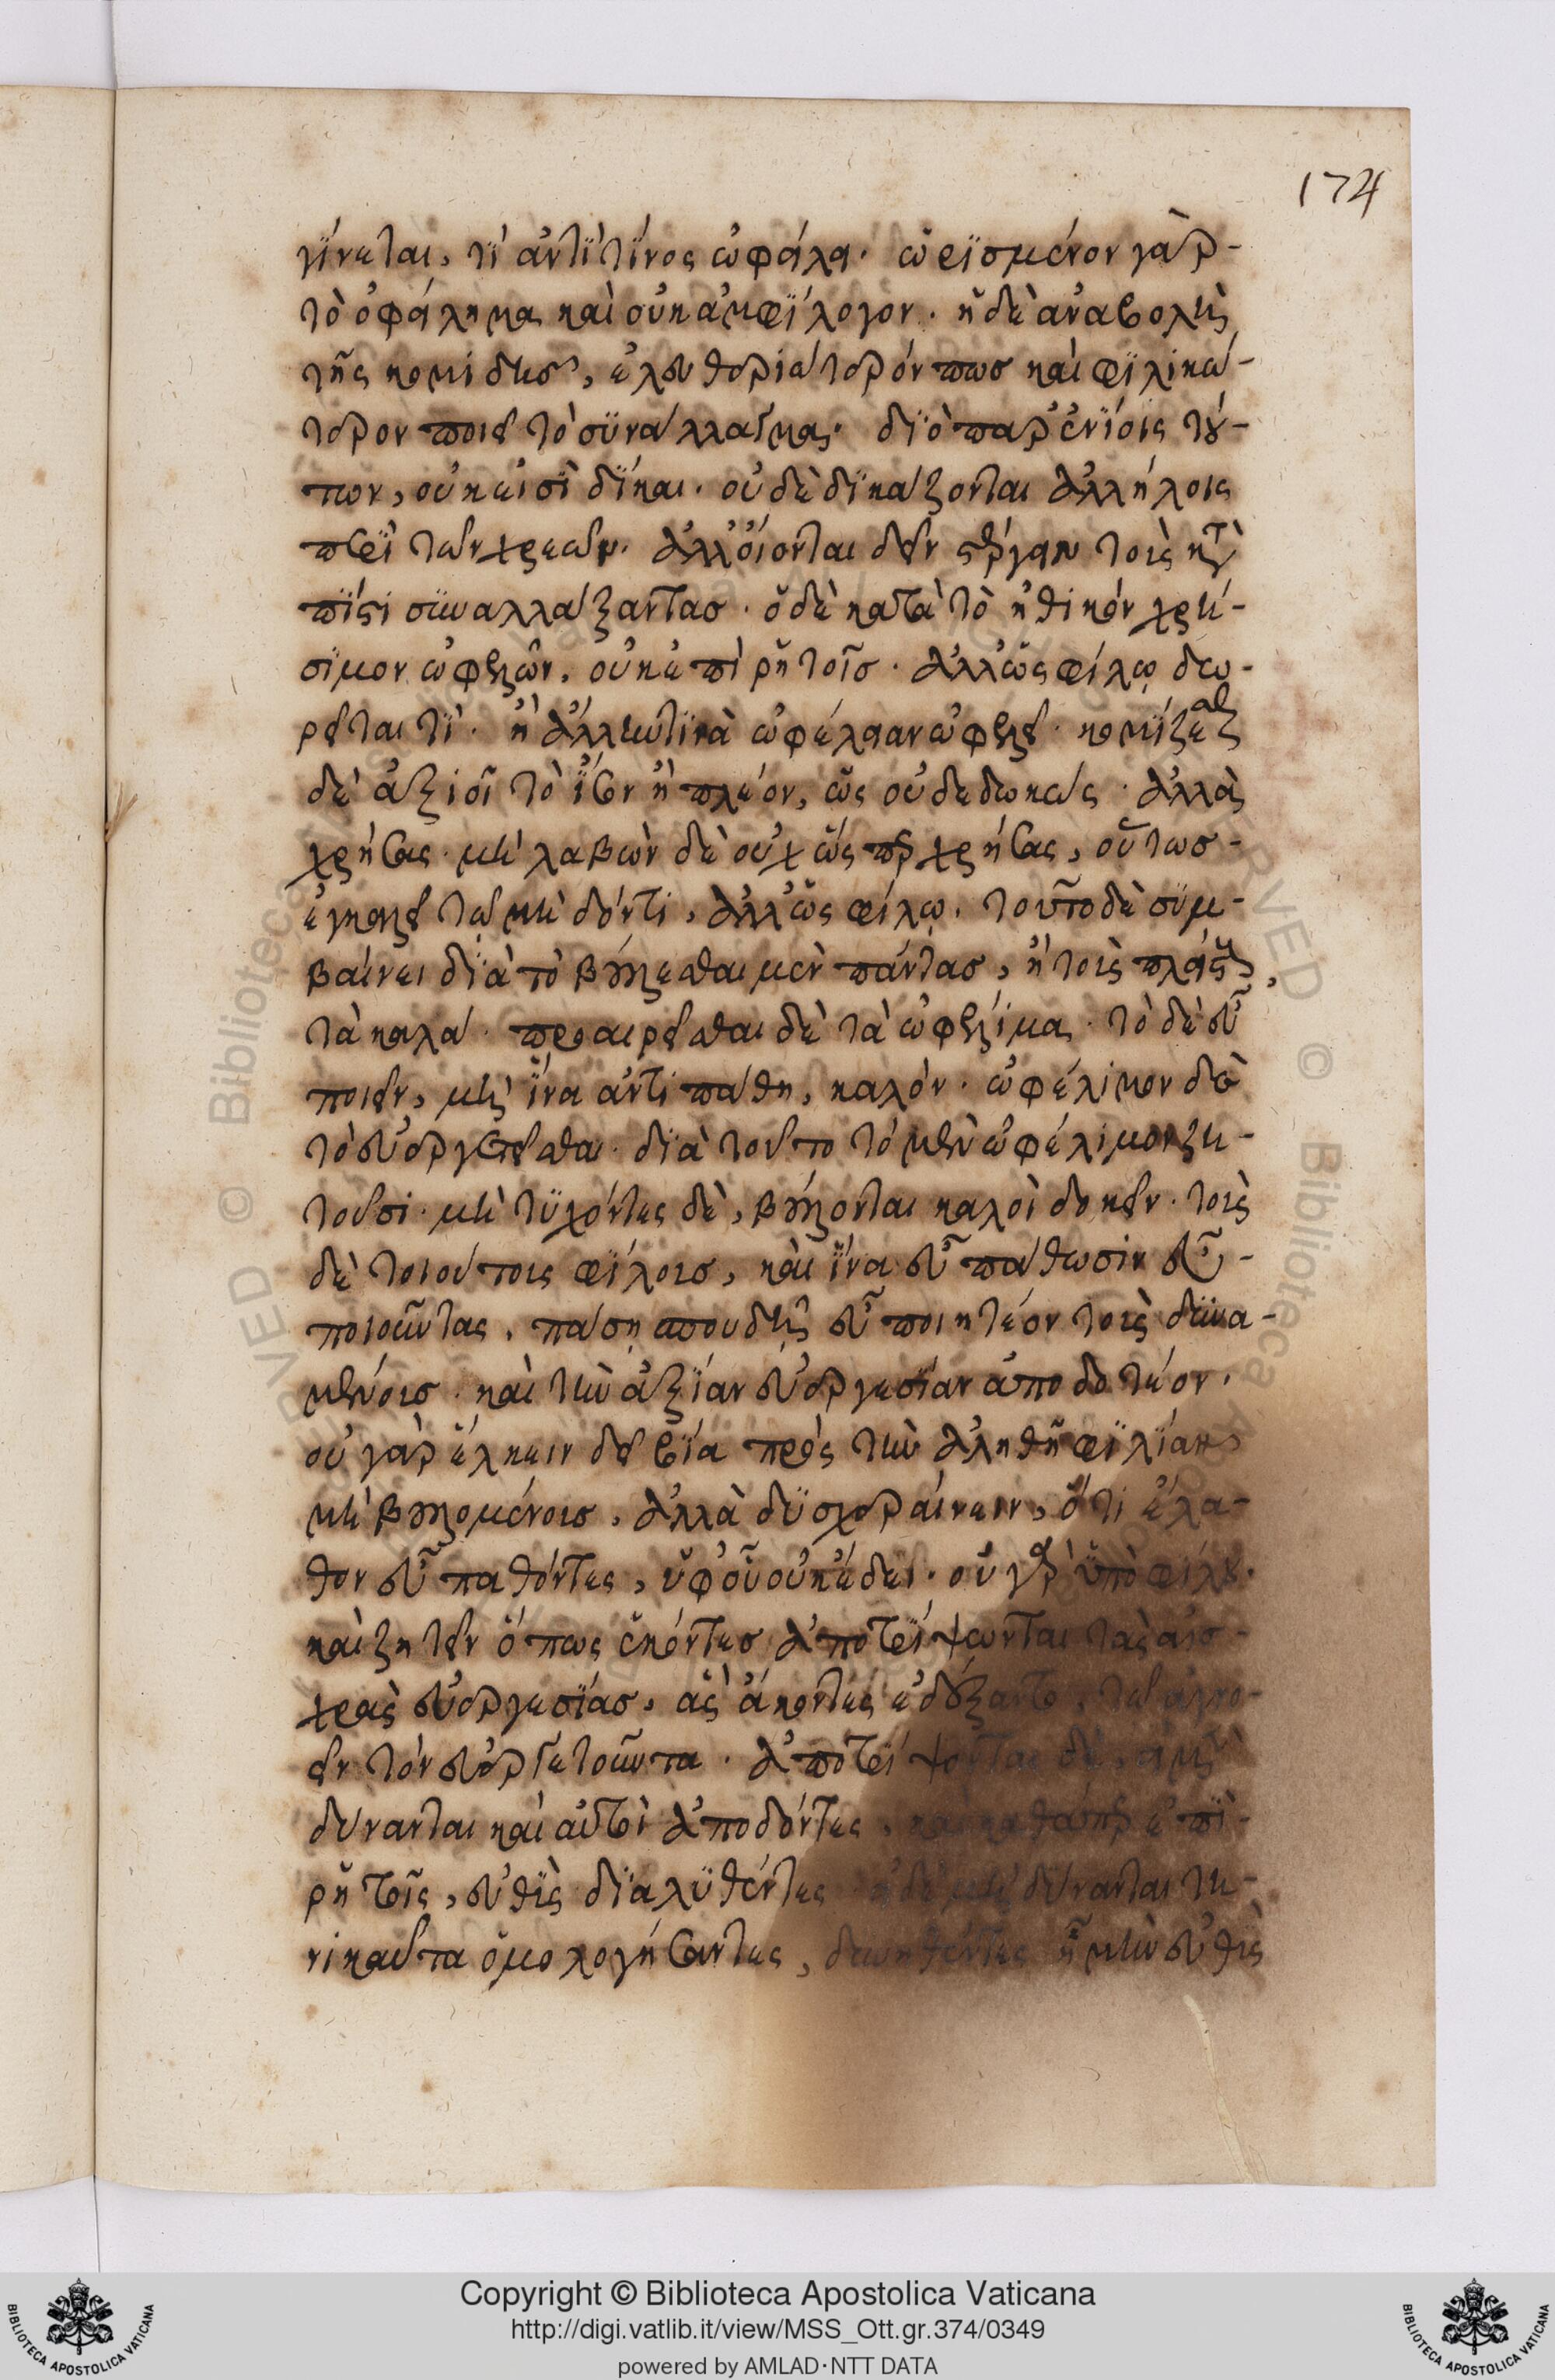 174
γίνεται, τί ἀντὶ τίνος ὠφείλει. ὡρισμένον γὰρ-
τὸ ὀφείλημα καὶ οὐκ ἀμφίλογον. ἡ δὲ ἀναβολὴ
τῆς κομιδῆσ, ἐλευθεριώτερόν πωσ καὶ φιλικώ-
τερον ποιεῖ τὸ συνάλλαγμα. διὸ παρ' ἐνίοις τού-
των, οὐκ εἰσὶ δίκαι. οὐδὲ δικάζονται ἀλλήλοις
περὶ τῶν χρεῶν. ἀλλ' οἴονται δεῖν στέργειν τοὺς κατὰ
πίστι συναλλάξαντασ. ὁ δὲ κατὰ τὸ ἠθικὸν χρή-
σιμον ὠφελῶν, οὐκ ἐπὶ ῥητοῖσ. ἀλλ' ὡς φίλῳ δω-
ρεῖται τὶ. ἢ ἄλλην τινὰ ὠφέλειαν ὠφελεῖ. κομίζεσθαι
δὲ ἀξιοῖ τὸ ἴσον ἢ πλέον, ὡς οὐ δεδωκὼς. ἀλλὰ
χρήσας. μὴ λαβὼν δὲ οὐχ ὥσπερ χρήσας, οὕτωσ-
ἐγκαλεῖ τῷ μὴ δόντι, ἀλλ' ὡς φίλῳ. τοῦτο δὲ συμ-
βαίνει διὰ τὸ βούλεσθαι μὲν πάντασ, ἢ τοὺς πλείστους,
τὰ καλά. προαιρεῖσθαι δὲ τὰ ὠφέλιμα. τὸ δὲ εὖ
ποιεῖν, μὴ ἵνα ἀντιπάθῃ, καλόν. ὠφέλιμον δὲ
τὸ εὐεργετεῖσθαι. διὰ τοῦτο τὸ μὲν ὠφέλιμον ζη-
τοῦσι. μὴ τυχόντες δὲ, βούλονται καλοὶ δοκεῖν. τοὺς
δὲ τοιούτοις φίλοισ, καὶ ἵνα εὖ πάθωσιν εὖ-
ποιοῦντας, πάσῃ σπουδῇ εὖ ποιητέον τοῖς δυνα-
μένοισ. καὶ τὴν ἀξίαν εὐεργεσίαν ἀποδοτέον.
οὐ γὰρ ἕλκειν δεῖ βίᾳ πρὸς τὴν ἀληθῆ φιλίαν
μὴ βουλομένοισ, ἀλλὰ δυσχεραίνειν, ὅτι ἔλα-
θον εὖ παθόντες, ὑφ' οὗ οὐκ ἔδει. οὐ γὰρ ὑπὸ φίλου.
καὶ ζητεῖν ὅπως ἑκόντεσ ἀποτρίψωνται τὰς αἰσ-
χρὰς εὐεργεσίασ, ἃς ἄκοντες ἐδέξαντο, τῷ ἀγνο-
εῖν τὸν εὐεργετοῦντα. ἀποτρίψονται δὲ, εἰ μὲν
δύνανται καὶ αὐτοὶ ἀποδόντες, καὶ καθάπερ ἐπὶ-
ῥητοῖς, εὐθὺς διαλυθέντες. εἰ δὲ μὴ δύνανται τη-
νικαῦτα ὁμολογήσαντες, δεηθέντες ἦ μὴν εὐθὺς
Copyright © Biblioteca Apostolica Vaticana
http://digi.vatlib.it/view/MSS_Ott.gr.374/0349
powered by AMLAD·NTT DATA